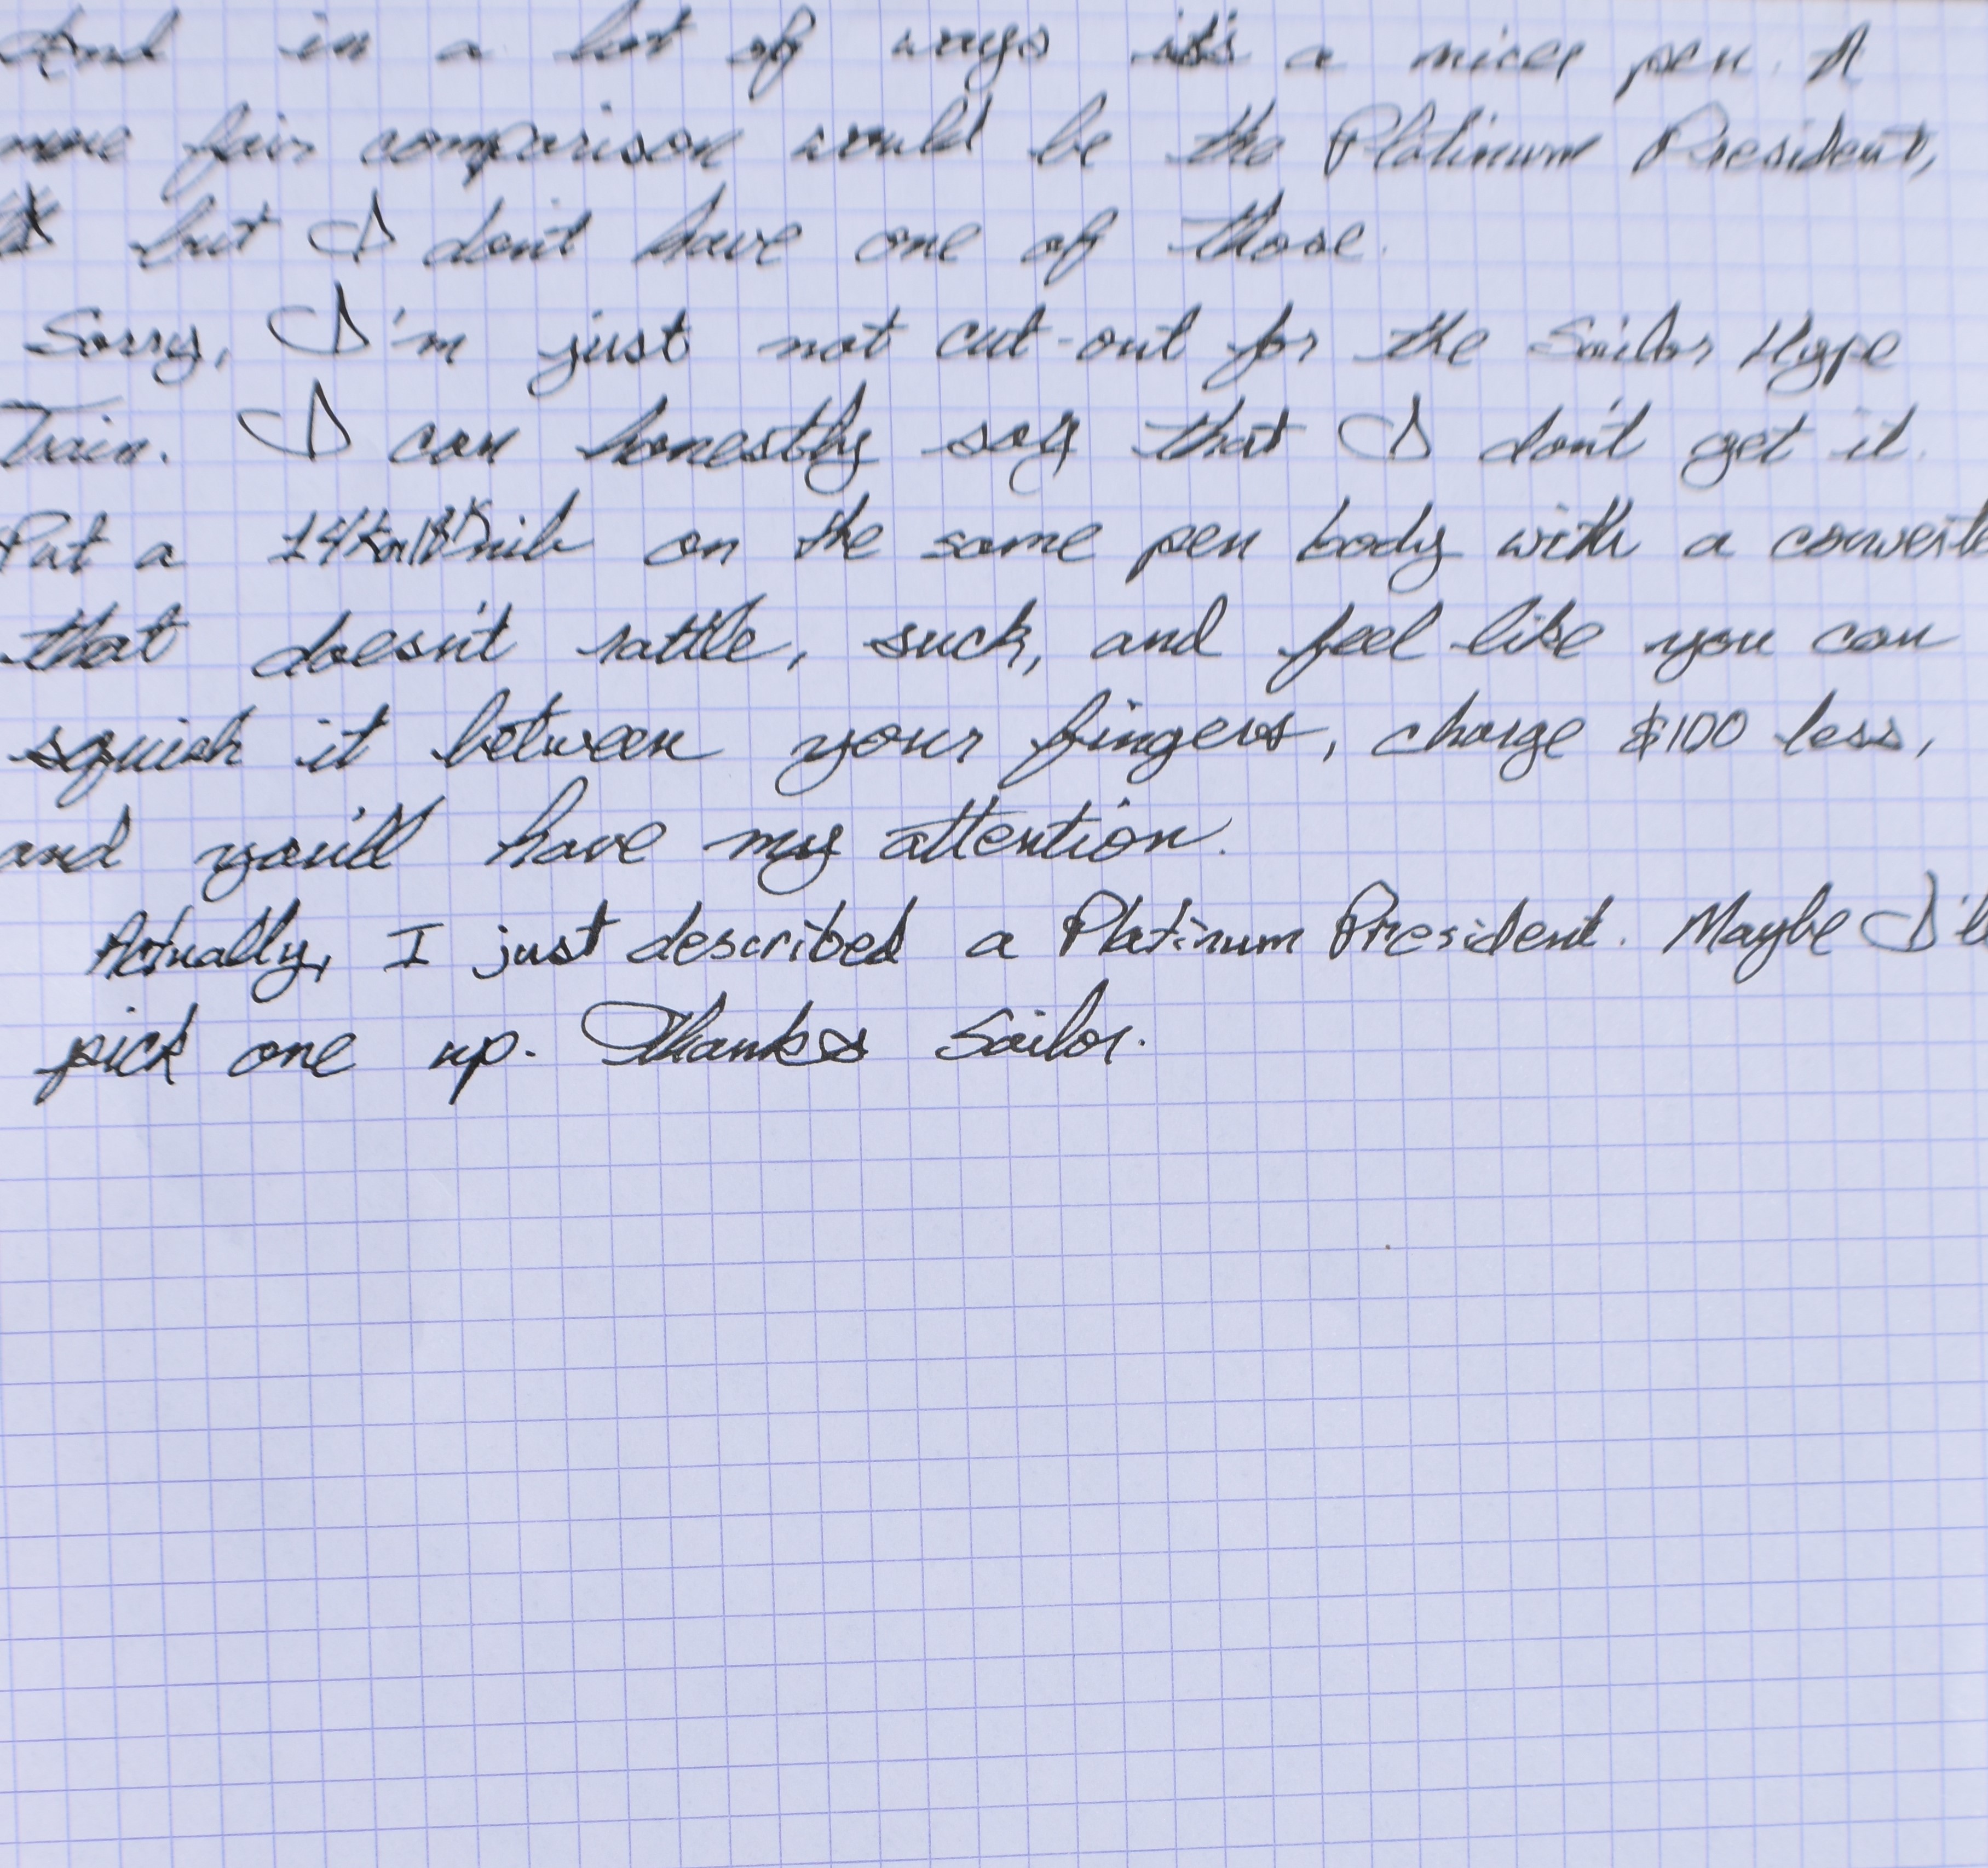 And in a lot of ways it's a nicer pen. A
more fair comparison would be the Platinum President,
but I don't have one of those.
Sorry, I'm just not cut-out for the Sailor Hype
Train. I can honestly say that I don't get it.
Put a 14K or 18K nib on the same pen body with a converte
that doesn't rattle, suck, and feel like you can
squish it between your fingers, charge $100 less,
and you'll have my attention.
Actually, I just described a Platinum President. Maybe I'll
pick one up. Thanks Sailor.